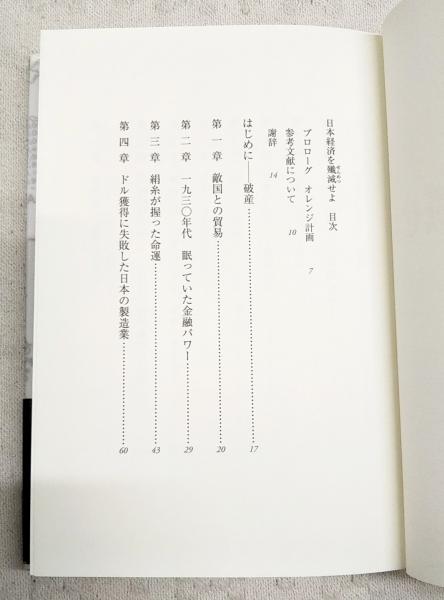 日本経済を殲滅せよ 目次
せんめつ
プロローグ オレンジ計画 7
参考文献について 10
謝辞 14
はじめに――破産 17
第一章 敵国との貿易 20
第二章 一九三〇年代 眠っていた金融パワー 29
第三章 絹糸が握った命運 43
第四章 ドル獲得に失敗した日本の製造業 60